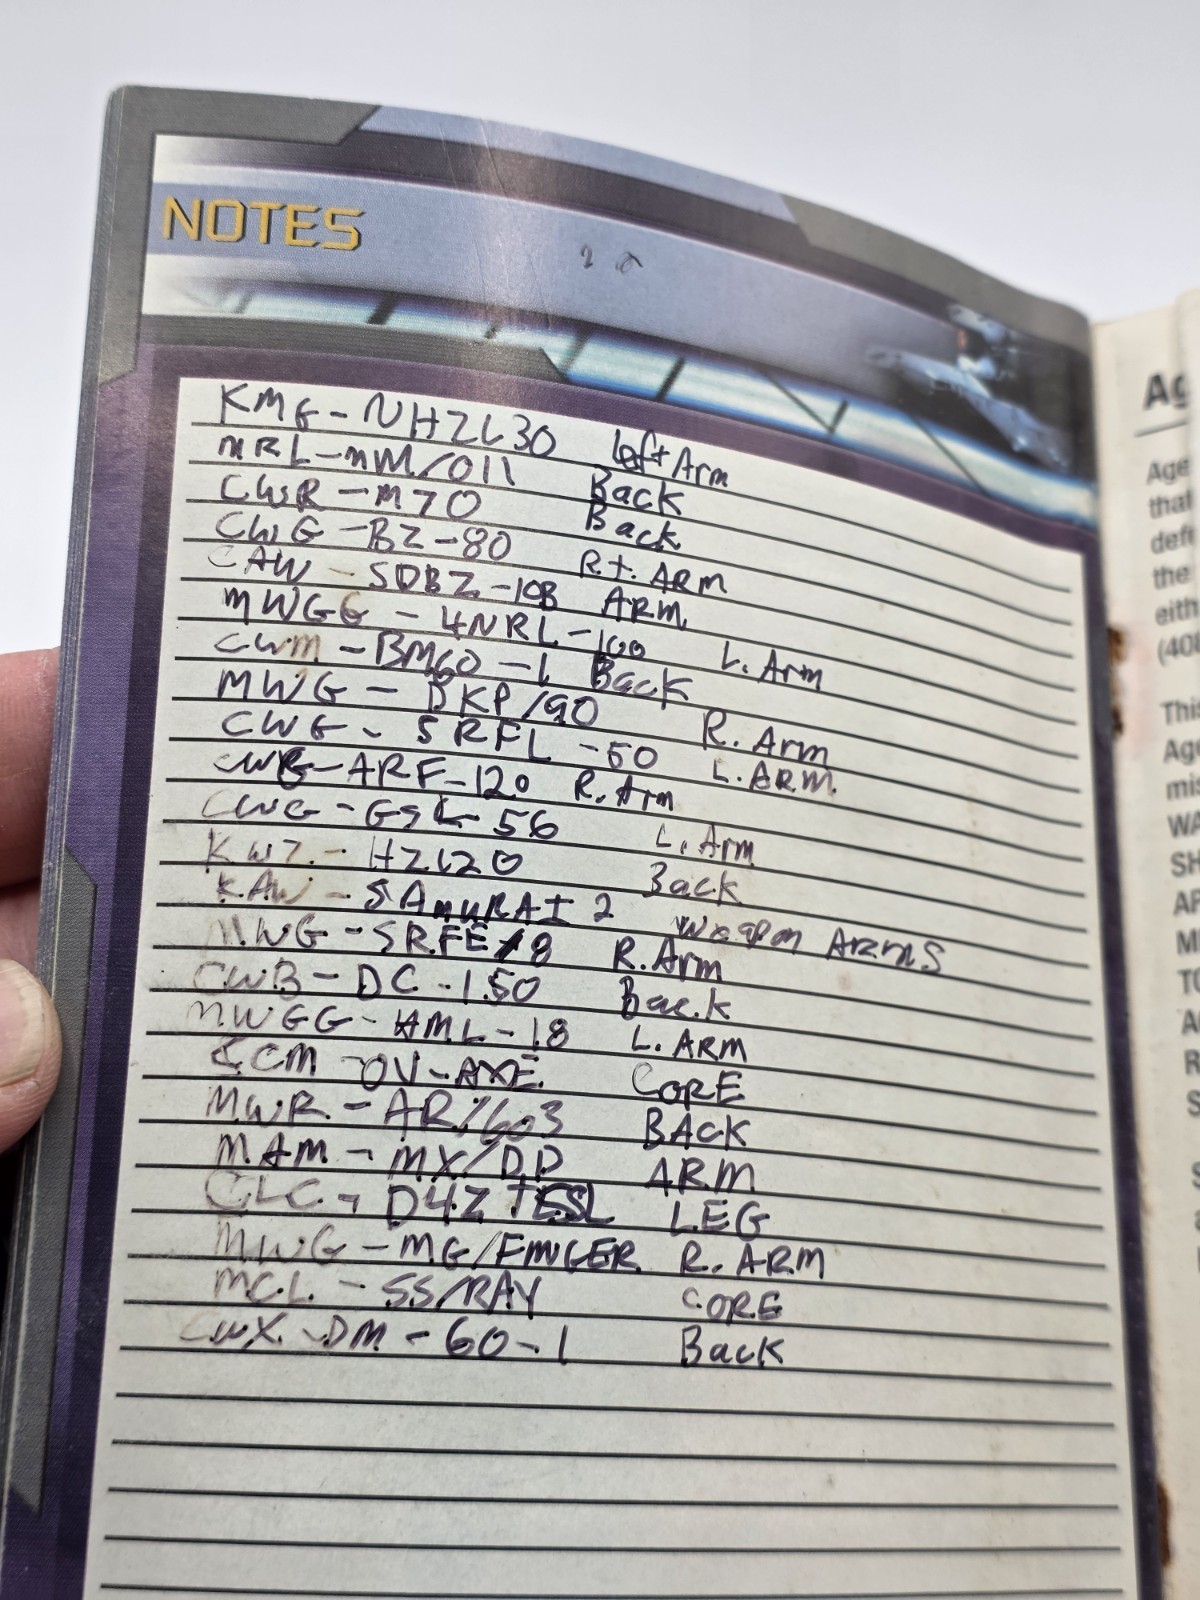 NOTES
KMG-NHZL30 Left Arm
MRL-MM/011 Back
CWR-M70 Back
CWG-BZ-80 Rt. ARM
CAW-SOBZ-10B ARM
MWGG-4NRL-100 L. Arm
CWM-BM60-1 Back
MWG-BKP/90 R. Arm
CWG-SRFL-50 L. ARM.
CWG-ARF-120 R. Arm
CWG-GSL-56 L. Arm
KWZ-HZL20 Back
KAW-SAMURAI 2 Weapon ARMS
MWG-SRFE/8 R. Arm
CWB-DC-150 Back
MWGG-AML-18 L. ARM
CCM-OV-AXE. CORE
MWR-AR/603 BACK
MAM-MX/DD ARM
CLC-D4Z TESL LEG
MWG-MG/FINGER R. ARM
MCL-SS/RAY CORE
CWX-DM-60-1 Back
Ag
Age
that
defe
the
eith
(408
This
Age
mis
WA
SH